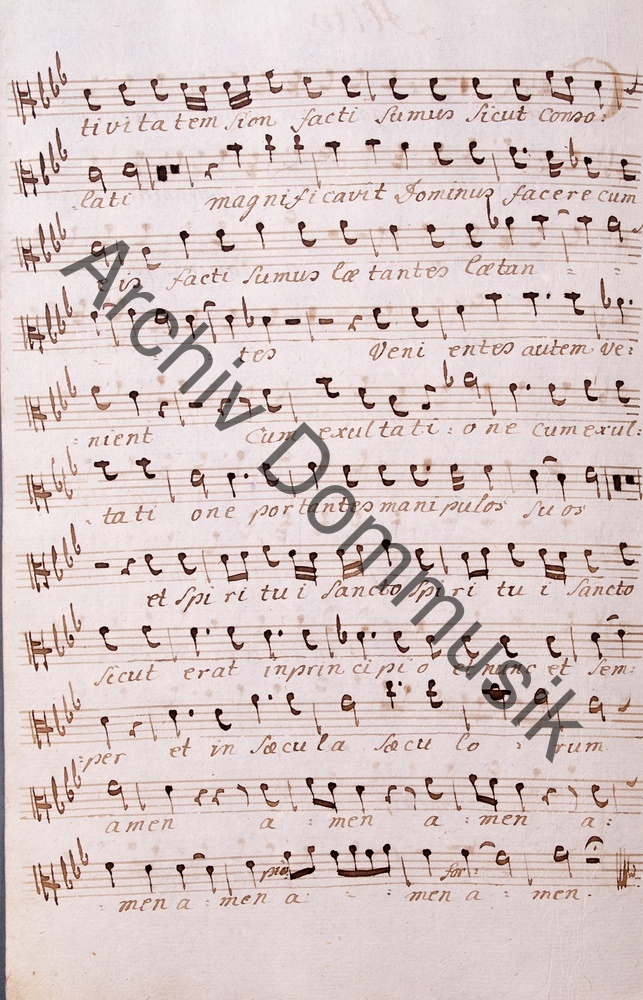 tivitatem sion facti sumus sicut conso:
lati magnificavit Dominus facere cum
eis facti sumus lætantes lætan = =
tes Veni entes autem ve:
nient Cum exultati: one cum exul:
tati one portantes manipulos suos
et spiritui sancto spiritui sancto
sicut erat in principio et nunc et sem:
per et in sæcula sæculo : rum
amen a = men a : men a :
pia: for:
men a : men a = = men a : men.
Archiv Dommusik